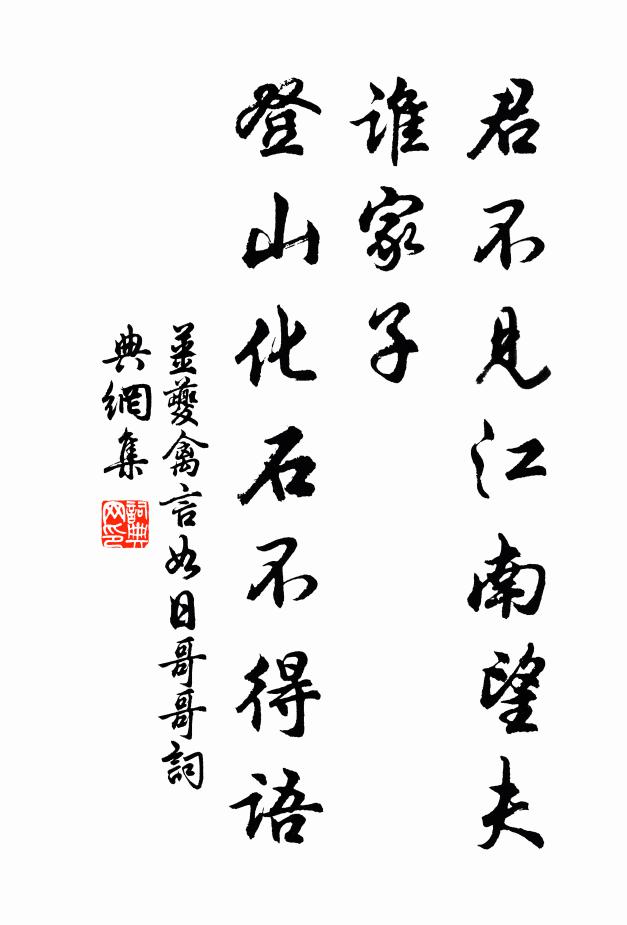 君不見江南望夫
誰家子
登山化石不得語
薑夔禽言如日哥哥詞
典網集
詞典
网印